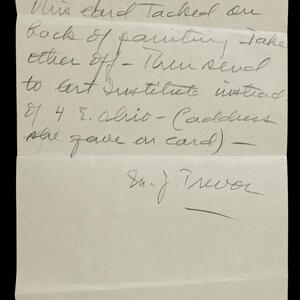 this card tacked on
back of painting, Take
other off - Then send
to Art Institute instead
of 4 E. Ohio - (address
she gave on card) -
M. J. Trevor